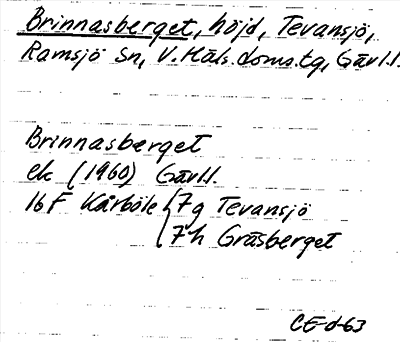 Brinnasberget, höjd, Tevansjö,
Ramsjö Sn, V. Häls. doms.tg, Gävl.l.
Brinnasberget
ek (1960) Gävl.l.
16F Kårböle { 7g Tevansjö
7h Gräsberget
CE-d-63